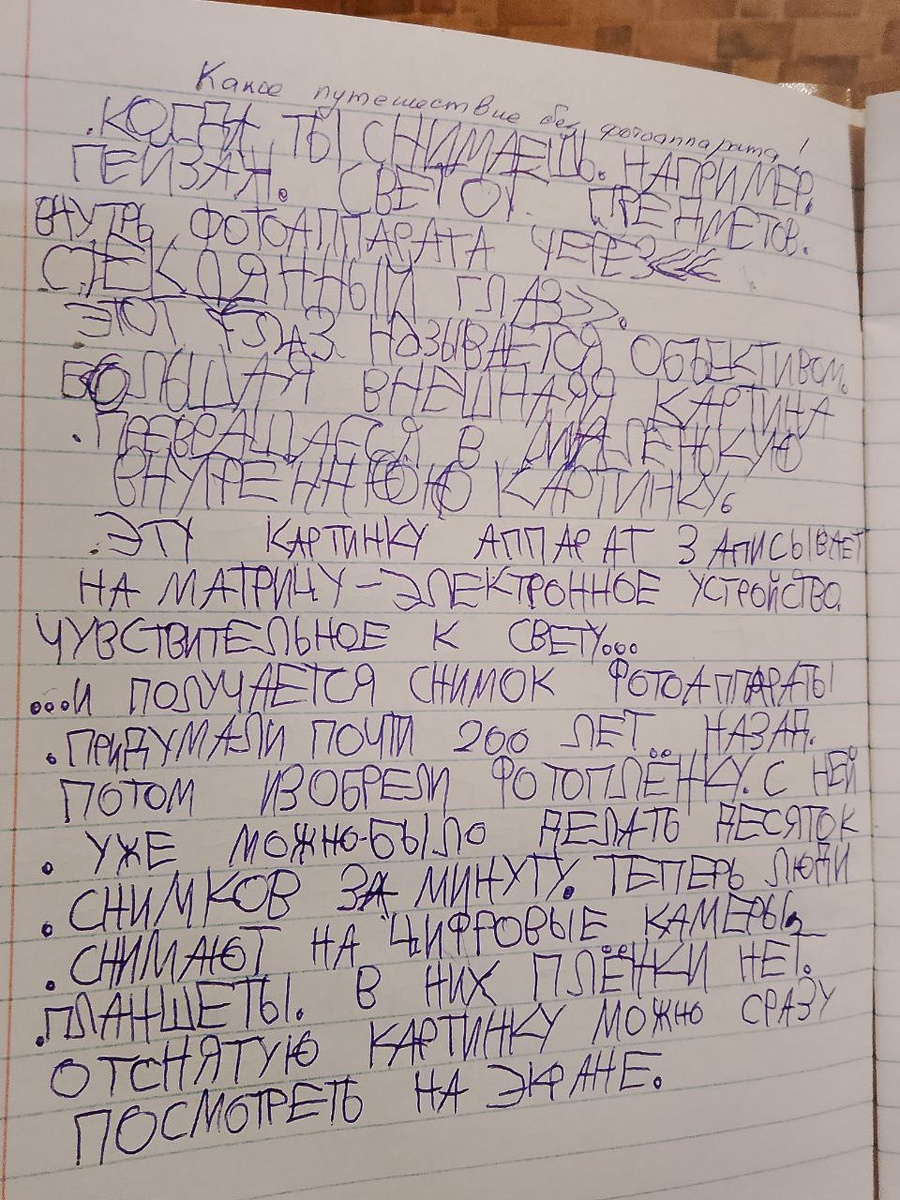 Какое путешествие без фотоаппарата!
.КОГДА ТЫ СНИМАЕШЬ. НАПРИМЕР.
ПЕЙЗАЖ. СВЕТ ОТ ПРЕДМЕТОВ.
ВНУТРЬ ФОТОАППАРАТА ЧЕРЕЗ <<
СТЕКЛЯННЫЙ ГЛАЗ>>.
ЭТОТ ГЛАЗ НАЗЫВАЕТСЯ ОБЪЕКТИВОМ.
БОЛЬШАЯ ВНЕШНАЯЯ КАРТИНА
.ПРЕВРАЩАЕСЯ В МАЛЕНЬКУЮ
ВНУТРЕННЮЮ КАРТИНКУ.
.ЭТУ КАРТИНКУ АППАРАТ ЗАПИСЫВАЕТ
НА МАТРИЦУ-ЭЛЕКТРОННОЕ УСТРОЙСТВО.
ЧУВСТВИТЕЛЬНОЕ К СВЕТУ...
...И ПОЛУЧАЕТСЯ СНИМОК ФОТОАППАРАТЫ
.ПРИДУМАЛИ ПОЧТИ 200 ЛЕТ.. НАЗАД.
ПОТОМ ИЗОБРЕЛИ ФОТОПЛЁНКУ. С НЕЙ
. УЖЕ МОЖНО-БЫЛО ДЕЛАТЬ ДЕСЯТОК
. СНИМКОВ ЗА МИНУТУ. ТЕПЕРЬ ЛЮДИ
. СНИМАЮТ НА ЦИФРОВЫЕ КАМЕРЫ,
.ПЛАНШЕТЫ. В НИХ ПЛЁНКИ НЕТ.
ОТСНЯТУЮ КАРТИНКУ МОЖНО СРАЗУ
ПОСМОТРЕТЬ НА ЭКРАНЕ.